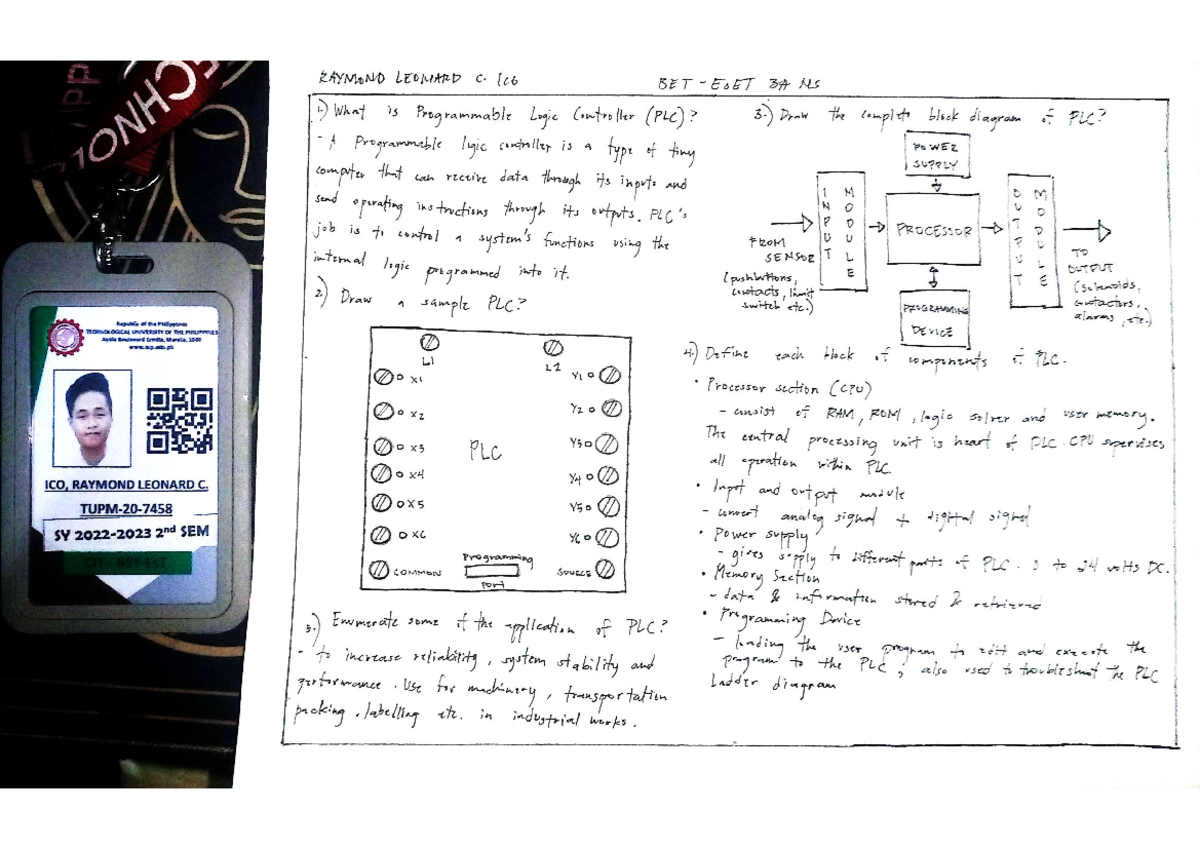 CHNOL
Republic of the Philippines
TECHNOLOGICAL UNIVERSITY OF THE PHILIPPINES
Ayala Boulevard Ermita, Manila, 1000
www.tup.edu.ph
ICO, RAYMOND LEONARD C.
TUPM-20-7458
SY 2022-2023 2nd SEM
CIT - BET-EsET
RAYMOND LEONARD C. ICO
BET - EsET 3A NS
1.) What is Programmable Logic Controller (PLC)?
- A Programmable logic controller is a type of tiny
computer that can receive data through its inputs and
send operating instructions through its outputs. PLC's
job is to control a system's functions using the
internal logic programmed into it.
2.) Draw a sample PLC?
L1
L2
X1
Y1
X2
Y2
X3
PLC
Y3
X4
Y4
X5
Y5
X6
Y6
COMMON
Programming
PORT
SOURCE
5.) Enumerate some of the application of PLC?
- to increase reliability, system stability and
performance. Use for machinery, transportation
packing, labelling etc. in industrial works.
3.) Draw the complete block diagram of PLC?
POWER
SUPPLY
INPUT
MODULE
PROCESSOR
OUTPUT
MODULE
FROM
SENSOR
(pushbuttons,
contacts, limit
switch etc.)
TO
OUTPUT
(solenoids,
contactors,
alarms, etc.)
PROGRAMMING
DEVICE
4.) Define each block of components of PLC.
• Processor section (CPU)
- consist of RAM, ROM, logic solver and user memory.
The central processing unit is heart of PLC. CPU supervises
all operation within PLC
• Input and output module
- convert analog signal to digital signal
• Power supply
- gives supply to different parts of PLC. 5 to 24 volts DC.
• Memory Section
- data & information stored & retrieved
• Programming Device
- loading the user program to edit and execute the
program to the PLC, also used to troubleshoot the PLC
Ladder diagram